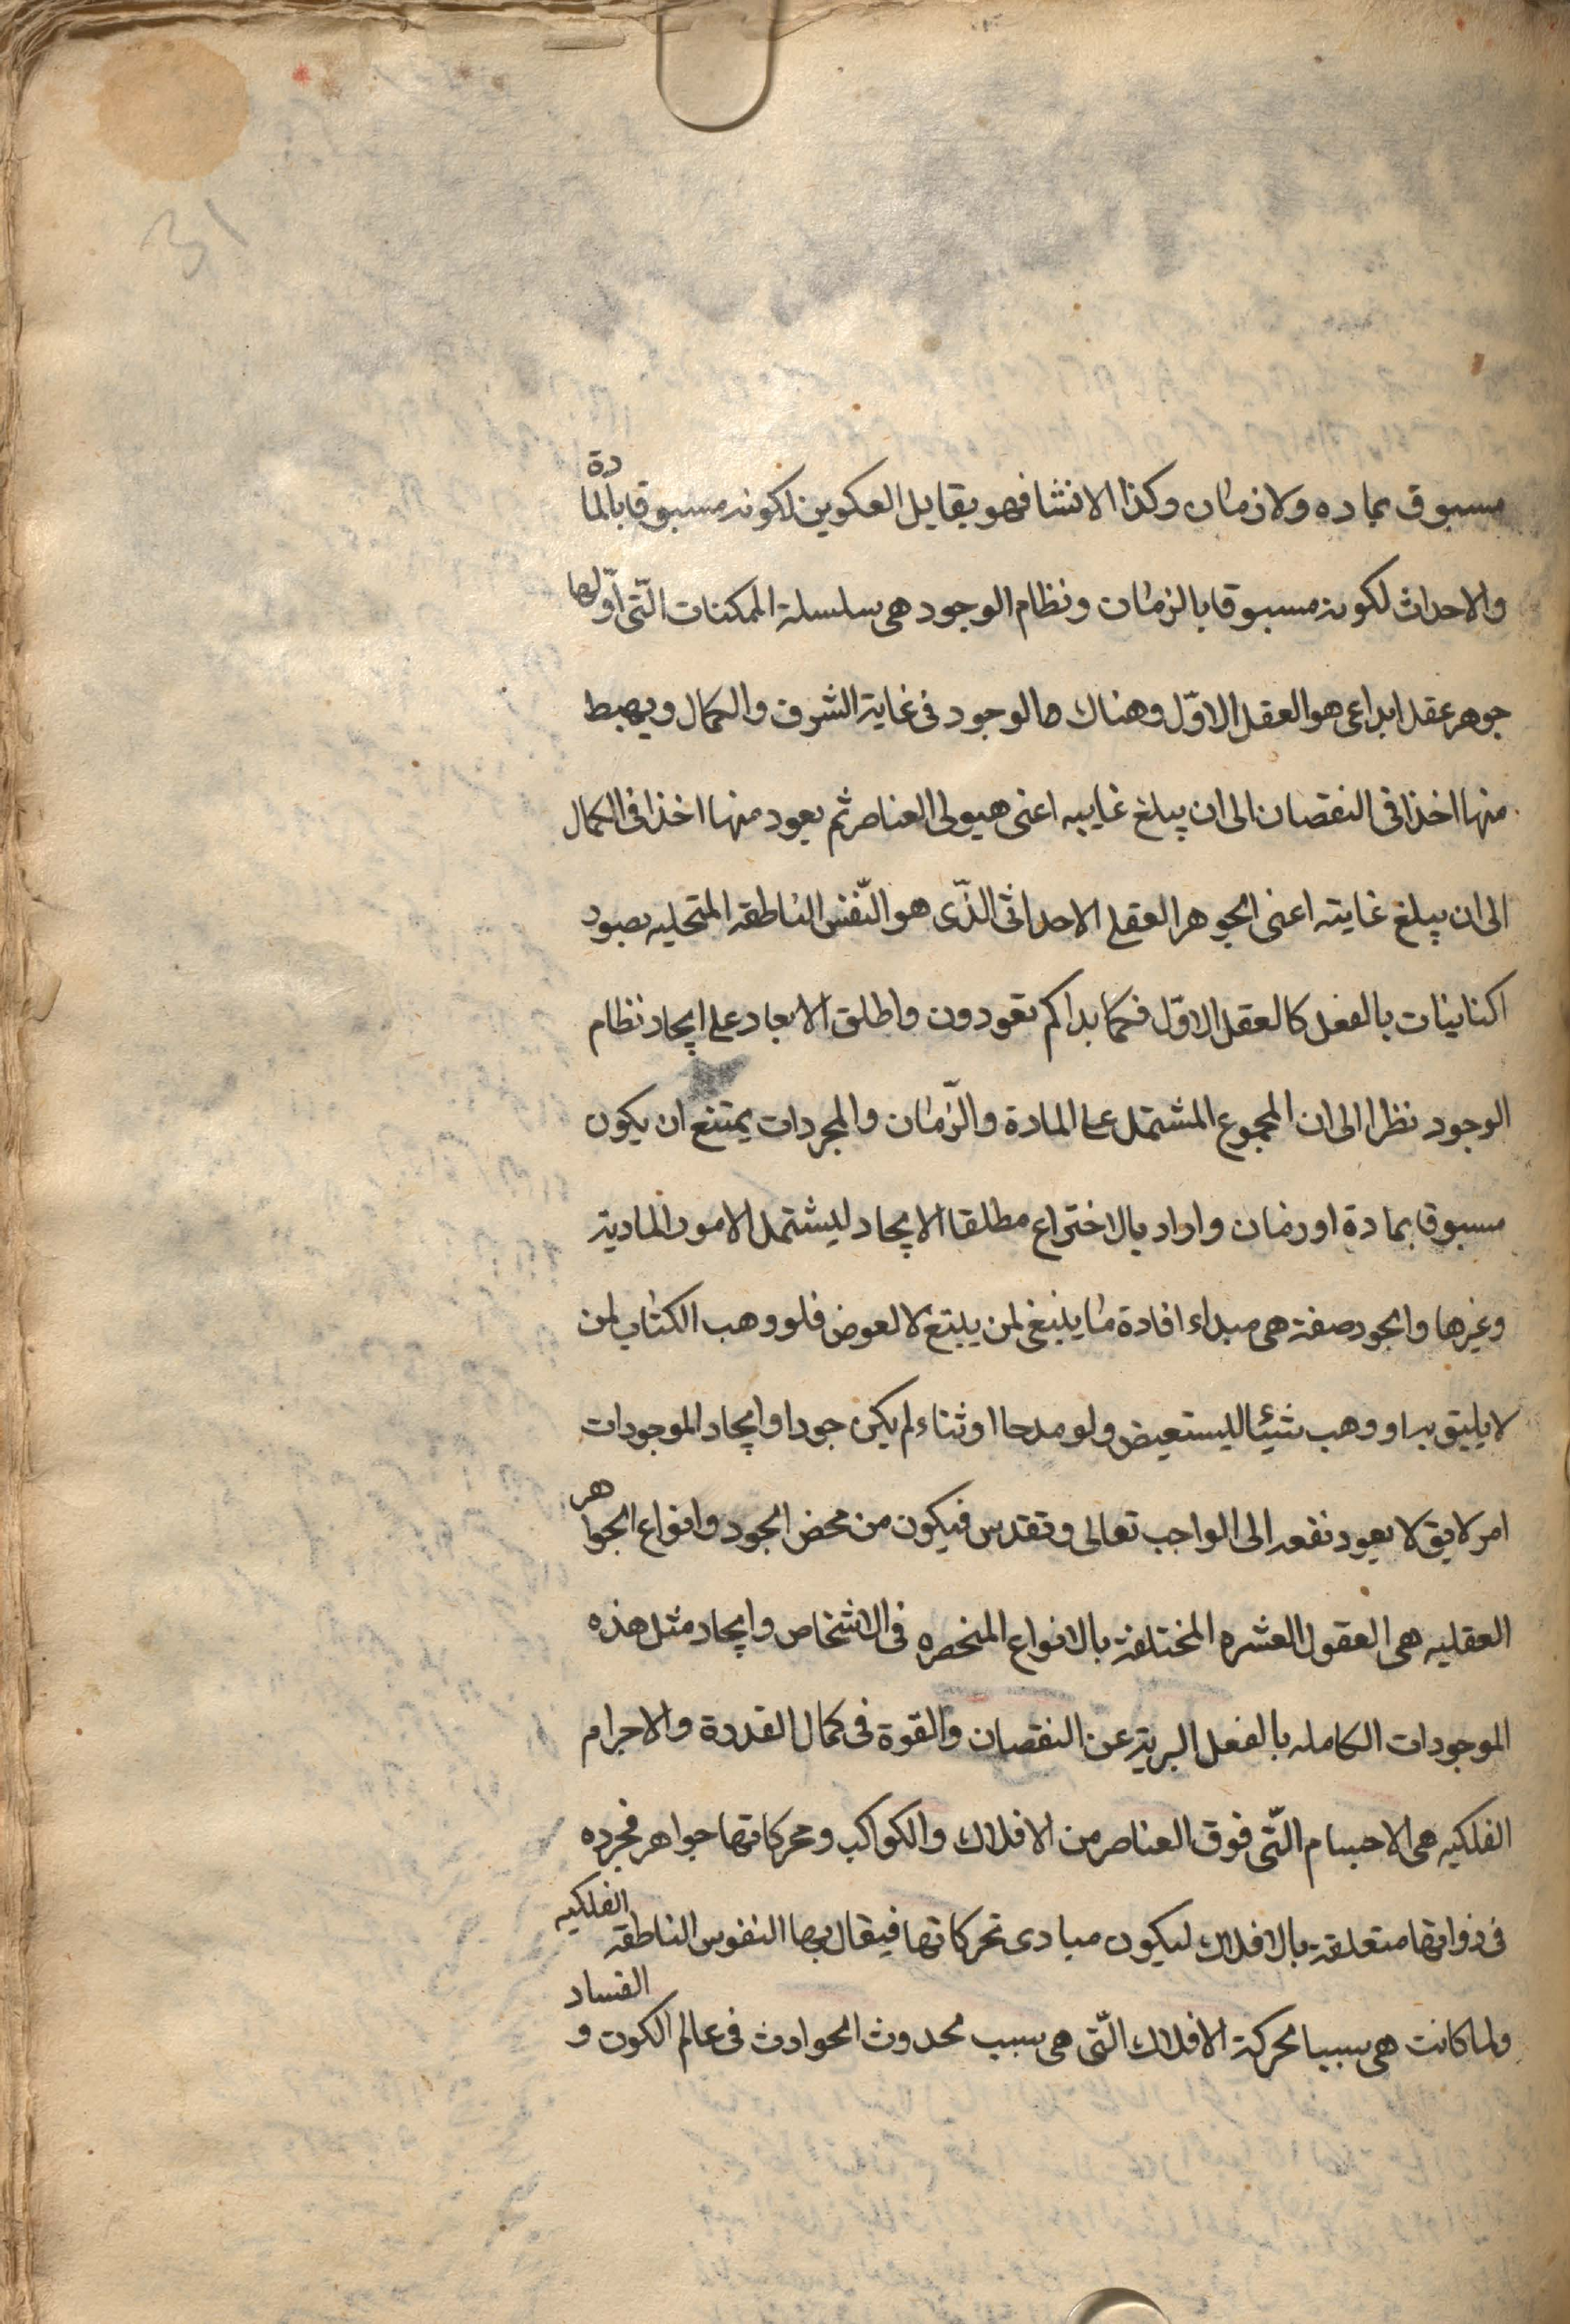 31
مسبوق بماده ولا زمان وكذا الانشا فهو يقابل العكوين لكونه مسبوقا بالمادة
والاحداث لكونه مسبوقا بالزمان ونظام الوجود هى سلسلة الممكنات الّتى اوّلها
جوهر عقل ابداعى هو العقل الاوّل وهناك صالوجود فى غاية الشرف والكمال ويهبط
منها اخذا فى النقصان الى ان يبلغ غاييه اعنى هيولى العناصر ثم يعود منها اخذا فى الكمال
الى ان يبلغ غايته اعنى الجوهر العقلى الاحداثى الذّى هو النّفس الناطقه المتحليه بصور
اكنانيات بالفعل كالعقل الاوّل فكما بداكم تعودون واطلق الابعاد على ايجاد نظام
الوجود نظرا الى ان المجموع المشتمل على المادة والزّمان والمجردات يمتنع ان يكون
مسبوقا بمادة او زمان واراد بالاختراع مطلقا الايجاد ليشتمل الامور المادية
وغيرها والجود صفة هى مبداء افادة ما ينبغى لمن يبتغ لا لعوض فلو وهب الكتاب لمن
لا يليق به او وهب شيئا ليستعيض ولو مدحا او ثناء لم يكن جودا وايجاد الموجودات
امر لايق لا يعود نفعه الى الواجب تعالى وتقدس فيكون من محض الجود وانواع الجواهر
العقليه هى العقول العشره المختلفة بالانواع المنحصره فى الاشخاص وايجاد مثل هذه
الموجودات الكامله بالفعل البرية عن النقصان والقوة فى كمال القدرة والاجرام
الفلكيه هى الاجسام الّتى فوق العناصر من الافلاك والكواكب ومحركاتها جواهر مجرده
فى ذواتها متعلقة بالافلاك ليكون مبادى تحركاتها فيقال بها النفوس الناطقه الفلكيه
ولما كانت هى سببا لحركة الافلاك الّتى هى سبب لحدوث الحوادث فى عالم الكون و الفساد